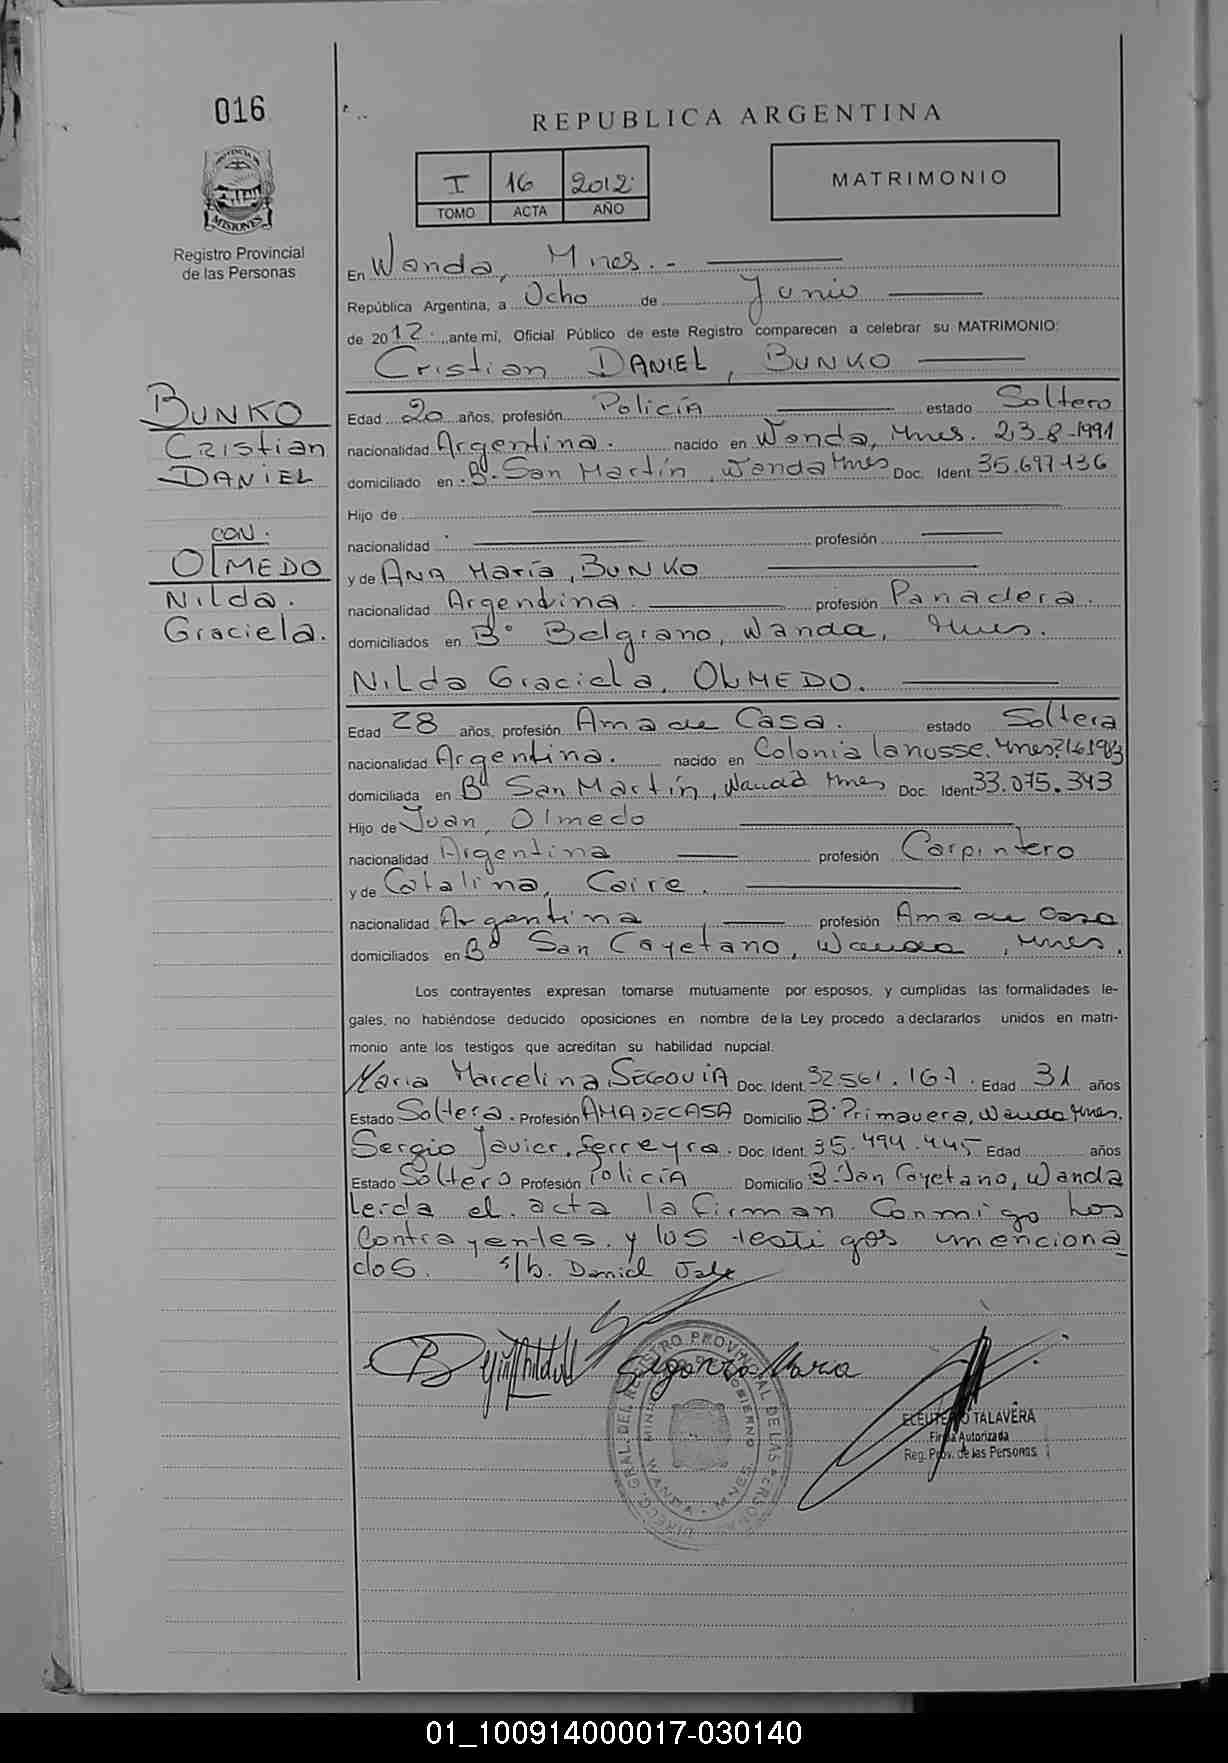 016
REPUBLICA ARGENTINA
I 16 2012
TOMO ACTA AÑO
MATRIMONIO
PROVINCIA DE
MISIONES
Registro Provincial
de las Personas
En Wanda, Mnes. -
República Argentina, a Ocho de Junio
de 2012 ante mi, Oficial Público de este Registro comparecen a celebrar su MATRIMONIO:
Cristian DANIEL, BUNKO
BUNKO
Cristian
DANIEL
CON.
OLMEDO
Nilda.
Graciela.
Edad 20 años, profesión Policía estado Soltero
nacionalidad Argentina. nacido en Wanda, Mnes. 23-8-1991
domiciliado en B. San Martín, Wanda Mnes Doc. Ident. 35.697.136
Hijo de
nacionalidad profesión
y de ANA María, BUNKO
nacionalidad Argentina. profesión Panadera.
domiciliados en B° Belgrano, Wanda, Mnes.
Nilda Graciela, OLMEDO.
Edad 28 años, profesión Ama de Casa. estado Soltera
nacionalidad Argentina. nacido en Colonia Lanusse. Mnes
domiciliada en B° San Martín, Wanda Mnes Doc. Ident. 33.075.343
Hijo de Juan, Olmedo
nacionalidad Argentina profesión Carpintero
y de Catalina, Caire.
nacionalidad Argentina profesión Ama de Casa
domiciliados en B° San Cayetano, Wanda, Mnes.
Los contrayentes expresan tomarse mutuamente por esposos, y cumplidas las formalidades le-
gales, no habiéndose deducido oposiciones en nombre de la Ley procedo a declararlos unidos en matri-
monio ante los testigos que acreditan su habilidad nupcial.
Maria Marcelina SEGOVIA Doc. Ident. 32.561.167. Edad 31 años
Estado Soltera. Profesión AMA DE CASA Domicilio B. Primavera, Wanda Mnes.
Sergio Javier, Ferreyra. Doc. Ident. 35.494.445 Edad años
Estado Soltero Profesión Policía Domicilio B. San Cayetano, Wanda
Leida el acta la firman Conmigo los
Contrayentes y los testigos menciona
dos. s/b. Daniel Vale
Segovia Maria
DIRECC. GRAL. DEL REGISTRO PROVINCIAL DE LAS PERSONAS
GOBIERNO
WANDA - MNES
ELEUTERIO TALAVERA
Firma Autorizada
Reg. Prov. de las Personas
01_100914000017-030140